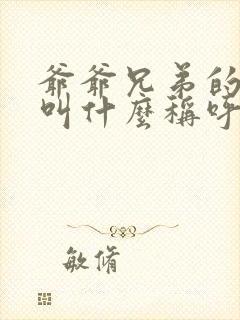 爺爺兄弟的
叫什麼稱呼
敏脩